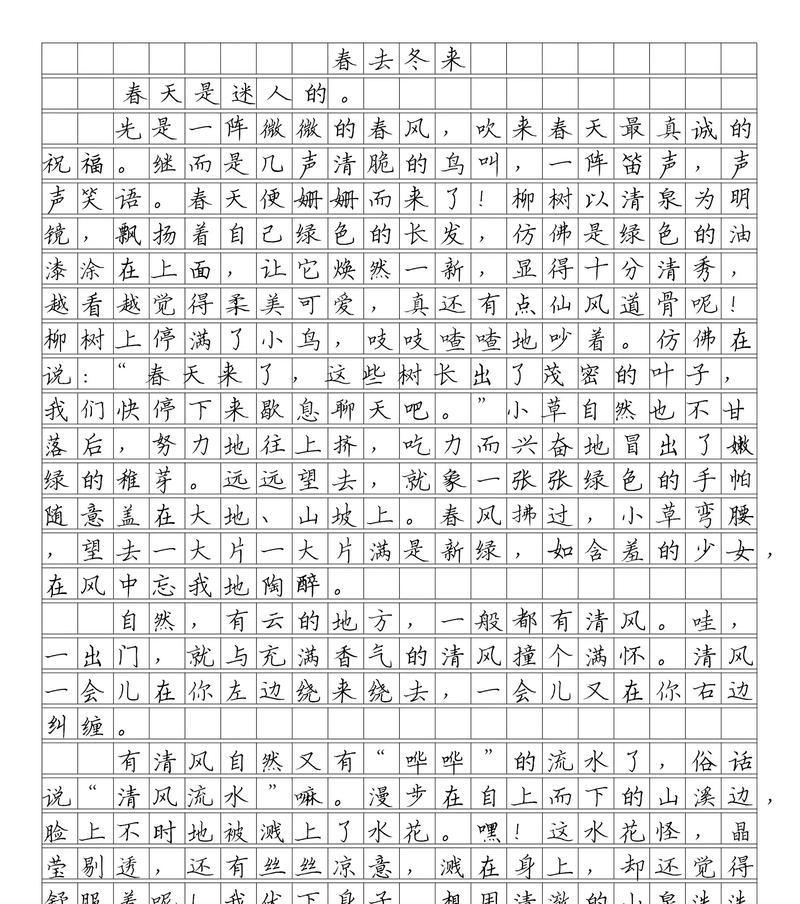 春去冬来
春天是迷人的。
先是一阵微微的春风，吹来春天最真诚的
祝福。继而是几声清脆的鸟叫，一阵笛声，声
声笑语。春天便姗姗而来了！柳树以清泉为明
镜，飘扬着自己绿色的长发，仿佛是绿色的油
漆涂在上面，让它焕然一新，显得十分清秀，
越看越觉得柔美可爱，真还有点仙风道骨呢！
柳树上停满了小鸟，吱吱喳喳地吵着。仿佛在
说：“春天来了，这些树长出了茂密的叶子，
我们快停下来歇息聊天吧。”小草自然也不甘
落后，努力地往上挤，吃力而兴奋地冒出了嫩
绿的稚芽。远远望去，就象一张张绿色的手帕
随意盖在大地、山坡上。春风拂过，小草弯腰
，望去一大片一大片满是新绿，如含羞的少女，
在风中忘我地陶醉。
自然，有云的地方，一般都有清风。哇，
一出门，就与充满香气的清风撞个满怀。清风
一会儿在你左边绕来绕去，一会儿又在你右边
纠缠。
有清风自然又有“哗哗”的流水了，俗话
说“清风流水”嘛。漫步在自上而下的山溪边，
脸上不时地被溅上了水花。嘿！这水花怪，晶
莹剔透，还有丝丝凉意，溅在身上，却还觉得
舒服着呢！我伏下身子，想用清澈的小泉洗洗